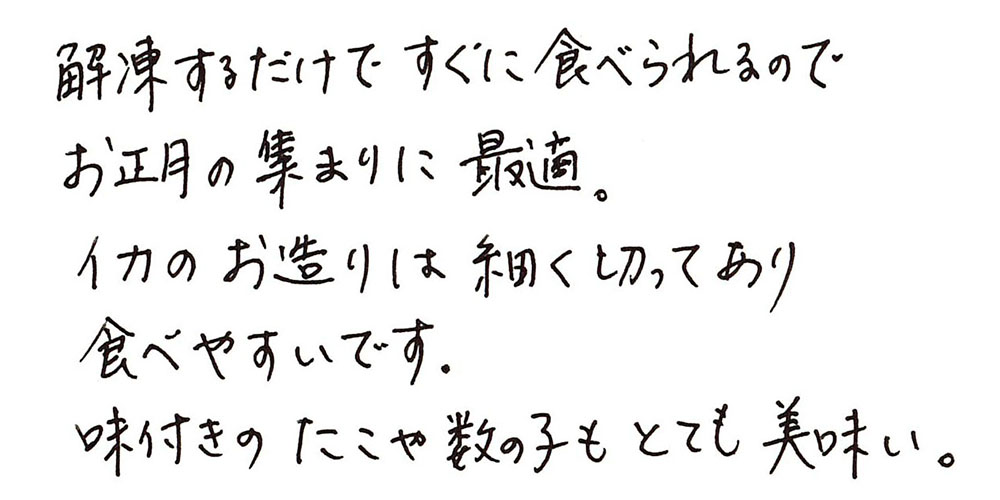 解凍するだけで すぐに 食べられるので
お正月の 集まりに 最適。
イカの お造りは 細く切ってあり
食べやすいです.
味付きの たこや数の子も とても 美味い。